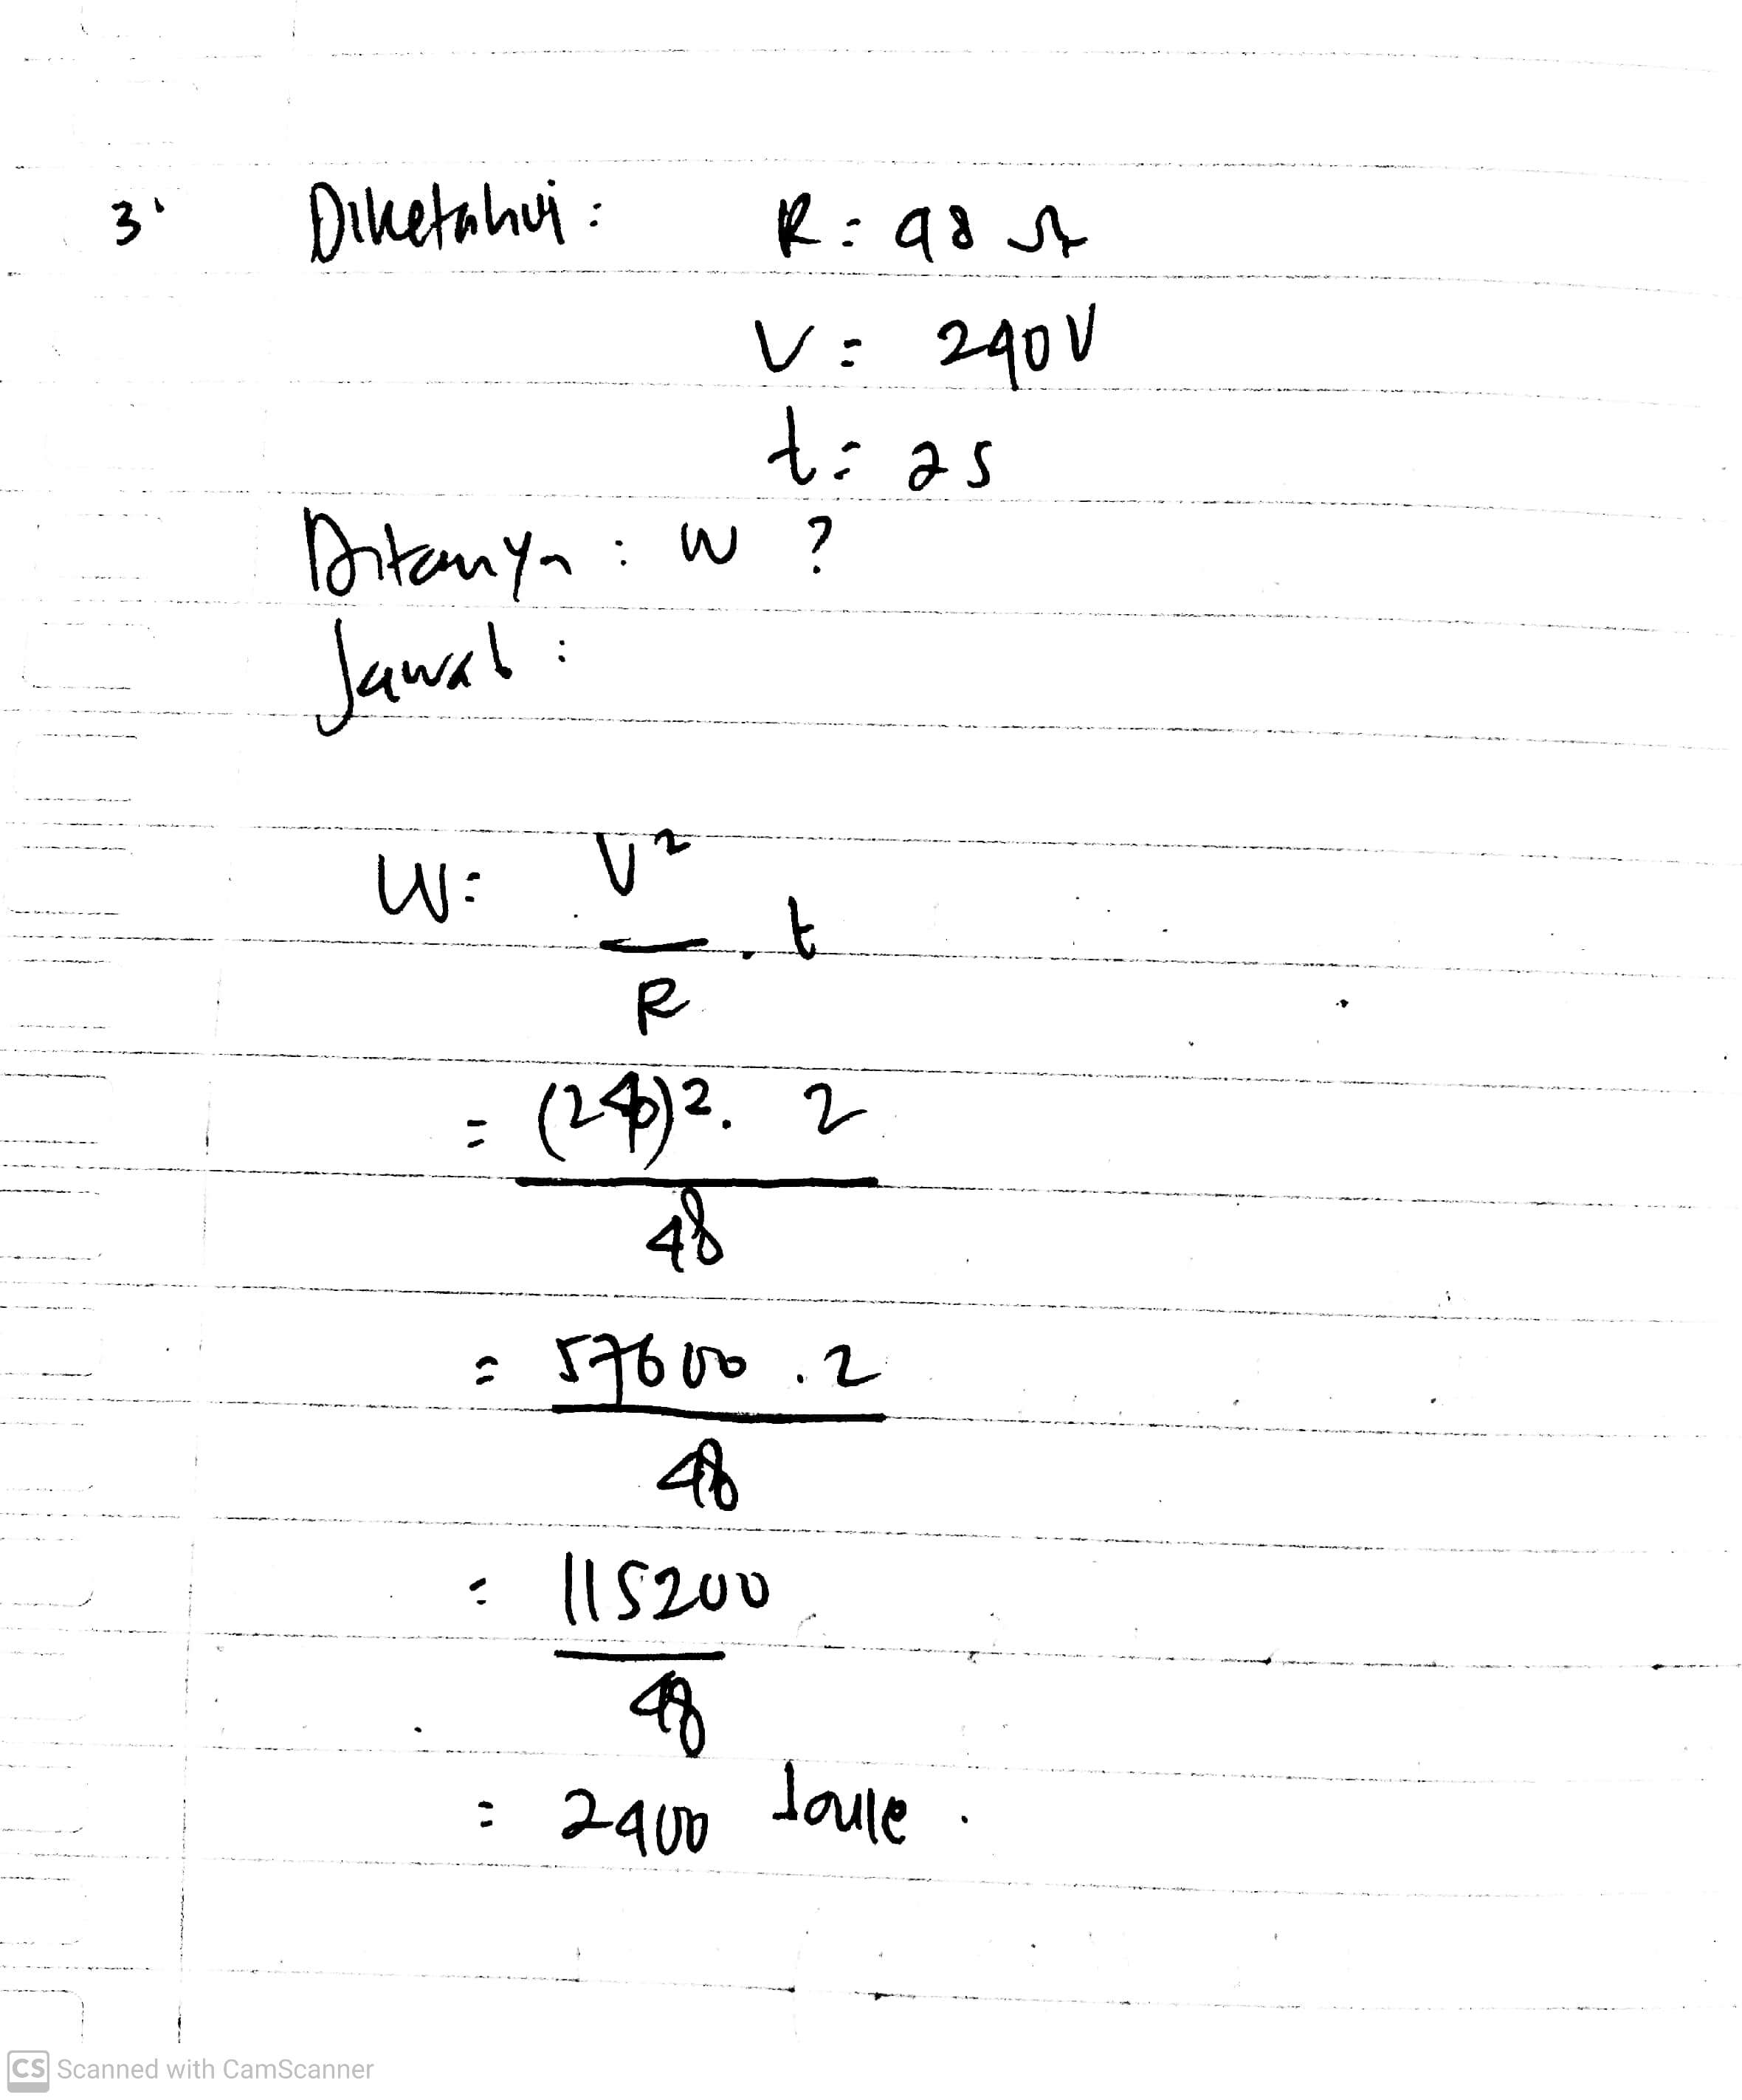 3. Diketahui : R = 48 Ω
V = 240 V
t = 2 s
Ditanya : W ?
Jawab :
W = V²
. t
R
= (240)² . 2
48
= 57600 . 2
48
= 115200
48
= 2400 Joule .
CS Scanned with CamScanner